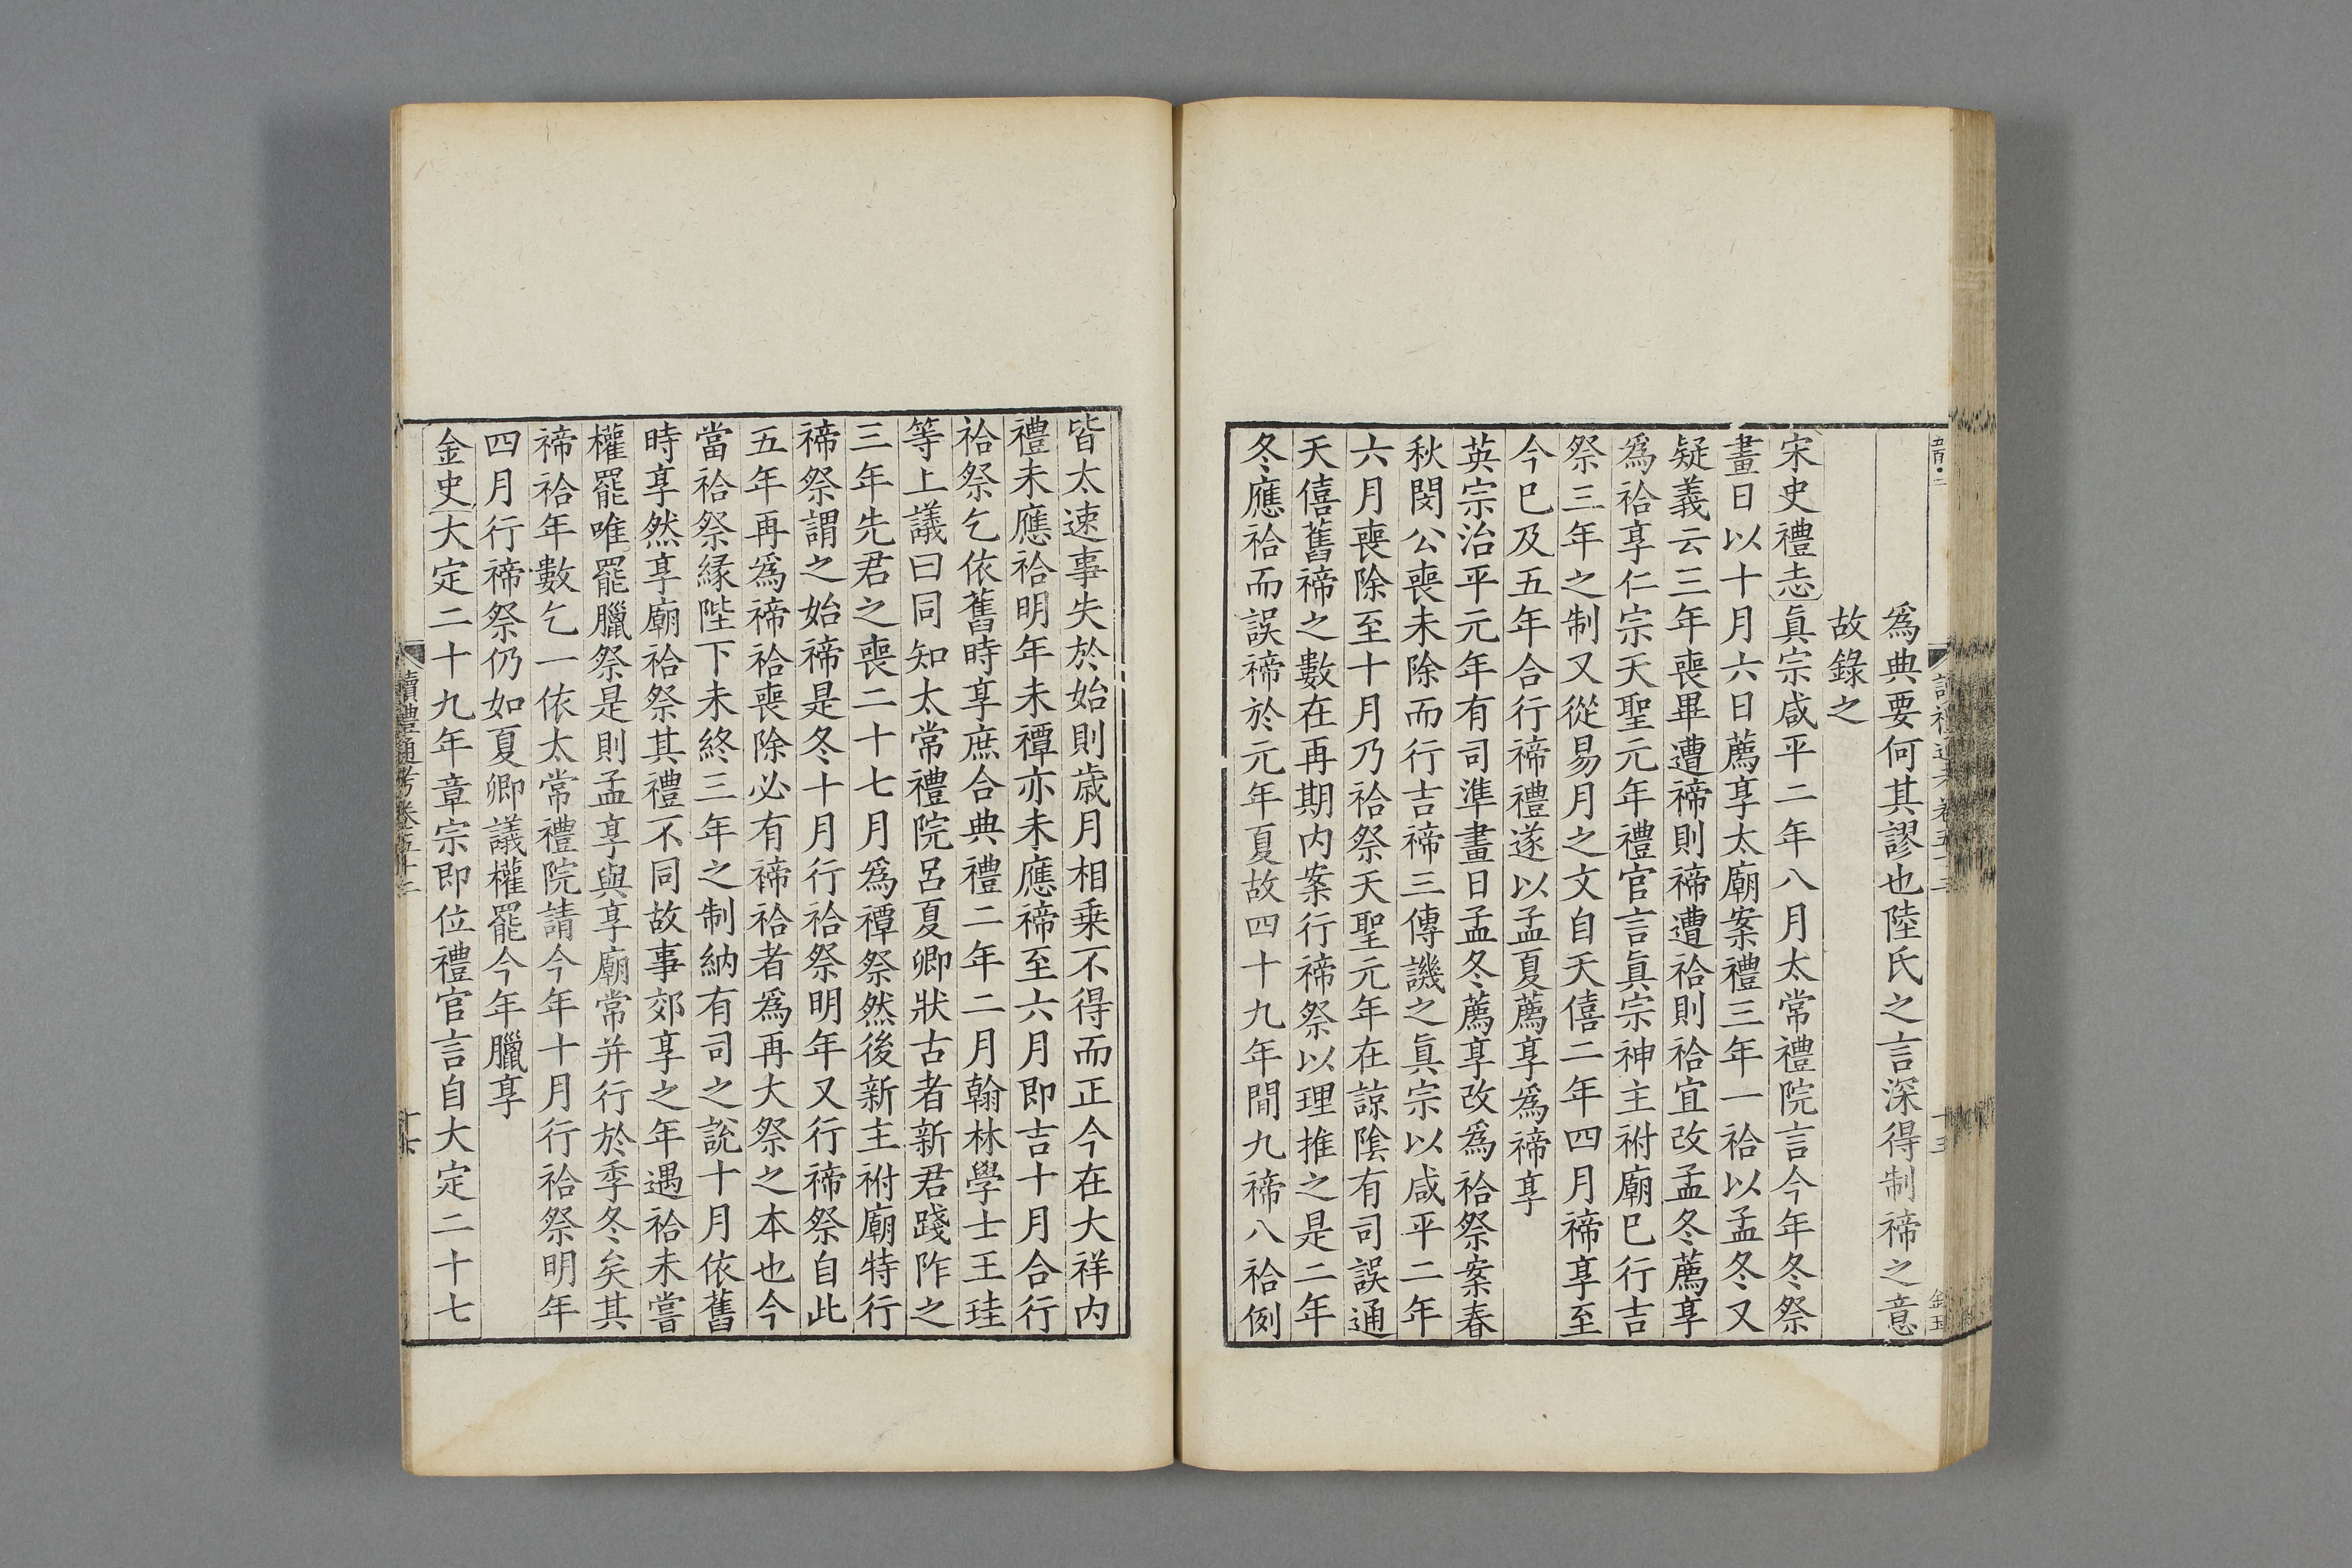 爲典要何其謬也陸氏之言深得制禘之意
故錄之
宋史禮志眞宗咸平二年八月太常禮院言今年冬祭
畫日以十月六日薦享太廟案禮三年一祫以孟冬又
疑義云三年喪畢遭禘則禘遭祫則祫宜改孟冬薦享
爲祫享仁宗天聖元年禮官言眞宗神主祔廟巳行吉
祭三年之制又從易月之文自天僖二年四月禘享至
今巳及五年合行禘禮遂以孟夏薦享爲禘享
英宗治平元年有司準畫日孟冬薦享改爲祫祭案春
秋閔公喪未除而行吉禘三傳譏之眞宗以咸平二年
六月喪除至十月乃祫祭天聖元年在諒陰有司誤通
天僖舊禘之數在再期内案行禘祭以理推之是二年
冬應祫而誤禘於元年夏故四十九年間九禘八祫例
皆太速事失於始則歲月相乗不得而正今在大祥内
禮未應祫明年未禫亦未應禘至六月即吉十月合行
祫祭乞依舊時享庶合典禮二年二月翰林學士王珪
等上議曰同知太常禮院呂夏卿狀古者新君踐阼之
三年先君之喪二十七月爲禫祭然後新主祔廟特行
禘祭謂之始禘是冬十月行祫祭明年又行禘祭自此
五年再爲禘祫喪除必有禘祫者爲再大祭之本也今
當祫祭縁陛下未終三年之制納有司之說十月依舊
時享然享廟祫祭其禮不同故事郊享之年遇祫未嘗
權罷唯罷臘祭是則孟享與享廟常并行於季冬矣其
禘祫年數乞一依太常禮院請今年十月行祫祭明年
四月行禘祭仍如夏卿議權罷今年臘享
金史大定二十九年章宗即位禮官言自大定二十七
讀禮通考卷五十二